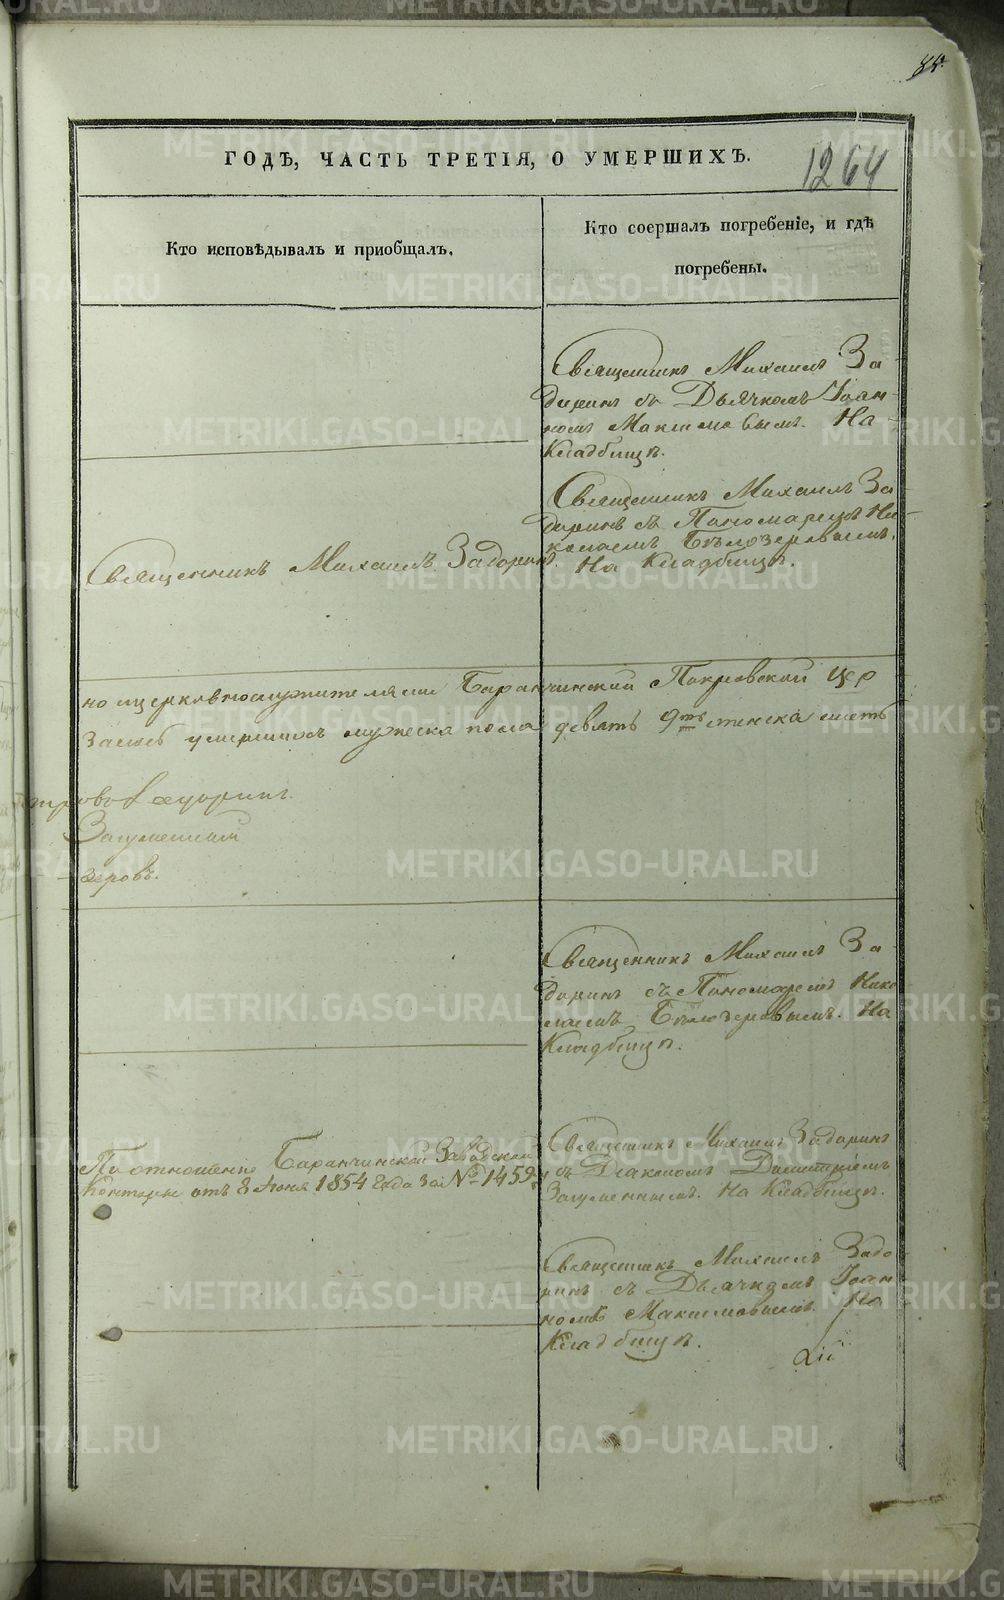 ГОДѢ, ЧАСТЬ ТРЕТІЯ, О УМЕРШИХЪ.
1264
Кто исповѣдывалъ и приобщалъ.
Кто соершалъ погребеніе, и гдѣ
погребены.
Священникъ Михаилъ За-
доринъ съ Дьячкомъ Іоан-
номъ Максимовымъ. На
Кладбищѣ.
Священникъ Михаилъ Задоринъ.
Священникъ Михаилъ За-
доринъ съ Пономаремъ Ни-
колаемъ Бѣлозеровымъ.
На Кладбищѣ.
но церковнослужителями Баранчинской Покровской Цер
умершихъ мужеска пола девять 9ть женска шесть
Ѳедоринъ.
Загуменный
зеровъ.
Священникъ Михаилъ За-
доринъ съ Пономаремъ Нико
лаемъ Бѣлозеровымъ. На
Кладбищѣ.
По отношенію Баранчинской Заводской
Конторы отъ 8 Іюня 1854 года за № 1459.
Священникъ Михаилъ Задоринъ
съ Діакономъ Димитріемъ
Загуменнымъ. На Кладбищѣ.
Священникъ Михаилъ Задо
ринъ съ Дьячкомъ Іоан
номъ Максимовымъ. На
Кладбищѣ.
METRIKI.GASO-URAL.RU